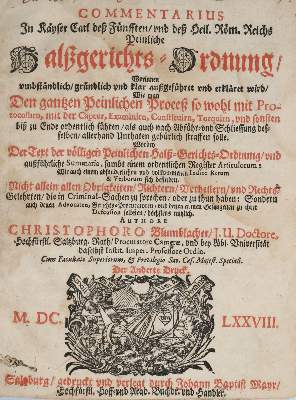 COMMENTARIUS
In Käyser Carl deß Fünfften/ vnd deß Heil. Röm. Reichs
Peinliche
Halßgerichts-Ordnung/
Worinnen
vmbständlich/ gründlich vnd klar außgeführt vnd erkläret wird/
Wie man
Den gantzen Peinlichen Proceß so wohl mit Pro-
tocolliren, mit der Captur, Examinibus, Constituiren, Torquiren, vnd sonsten
biß zu Ende ordentlich führen/ als auch nach Abführ- vnd Schliessung deß-
selben/ allerhand Unthaten gebührlich straffen solle.
Der Text der völligen Peinlichen Halß-Gerichts-Ordnung/ vnd
außführliche Summaria, sambt einem ordentlichen Register Articulorum:
Wie auch einem vollkommenen Indice Rerum
& Verborum sich befinden.
Nicht allein allen Obrigkeiten/ Richtern/ Vrtheilern/ vnd Rechts-
Gelehrten/ die in Criminal-Sachen zu sprechen/ oder zu thun haben: Sondern
auch denen Advocaten, Gerichts-Procuratorn/ vnd denen armen Gefangenen zu ihrer
Defension selbsten/ höchstens nutzlich.
AUTHORE
CHRISTOPHORO Blumblacher/ J. U. Doctore,
Hochfürstl. Saltzburg. Rath/ Procuratore Cameræ, vnd bey Löbl. Universität
daselbst Instit. Imper. Professore Ordin.
Cum Facultate Superiorum, & Privilegio Sac. Cæs. Majest. Speciali.
Der Anderte Druck.
M. DC. LXXVIII.
Saltzburg/ gedruckt vnd verlegt durch Johann Baptist Mayr/
Hochfürstl. Hoff- vnd Acad. Buchdr. vnd Handler.